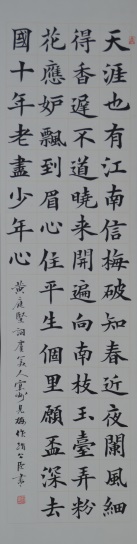 天涯也有江南信梅破知春近夜闌風細
得香遲不道曉來開遍向南枝玉臺弄粉
花應妒飄到眉心住平生個里願盃深去
國十年老盡少年心
黃庭堅詞虞美人宜州見梅作書